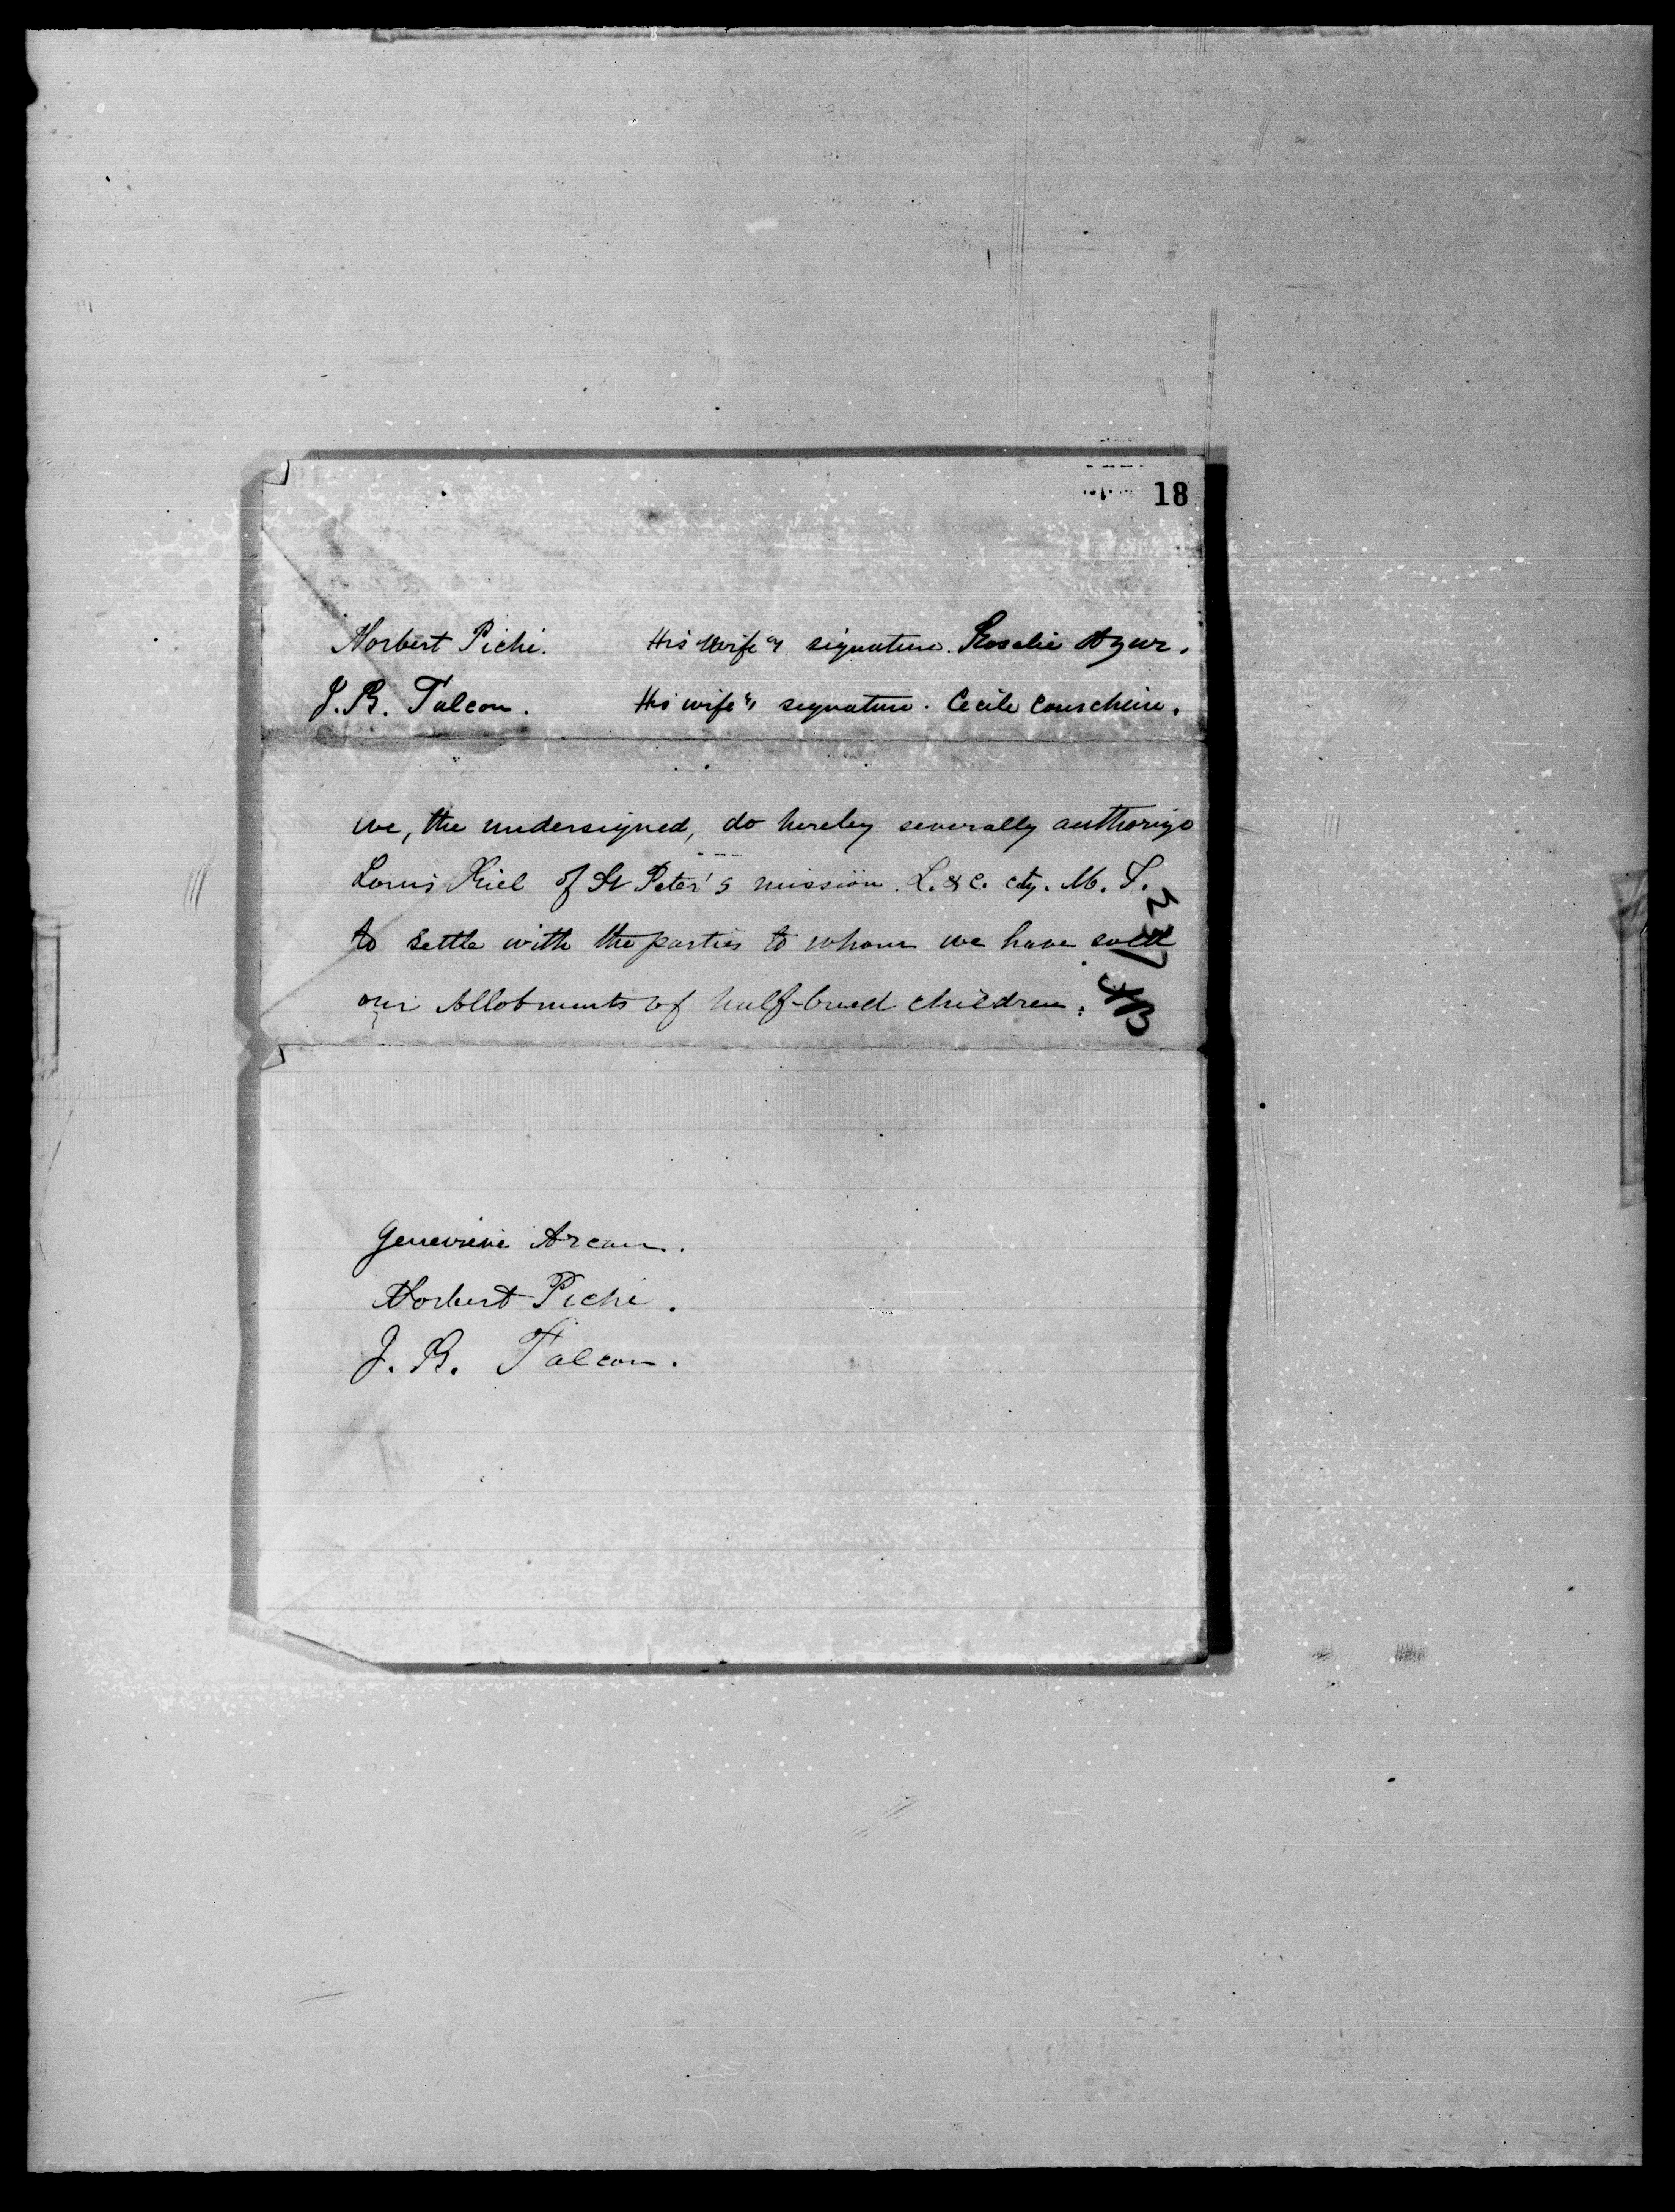 18
Norbert Piché. His wife's signature. Rosalie Azur.
J. B. Falcon. His wife's signature. Cécile Courchêne.
we, the undersigned, do hereby severally authorize
Louis Riel of St Peter's mission. L. & C. cty. M. T.
to settle with the parties to whom we have sold
our Allotments of half-breed children.
Geneviève Arcan.
Norbert Piché.
J. B. Falcon.